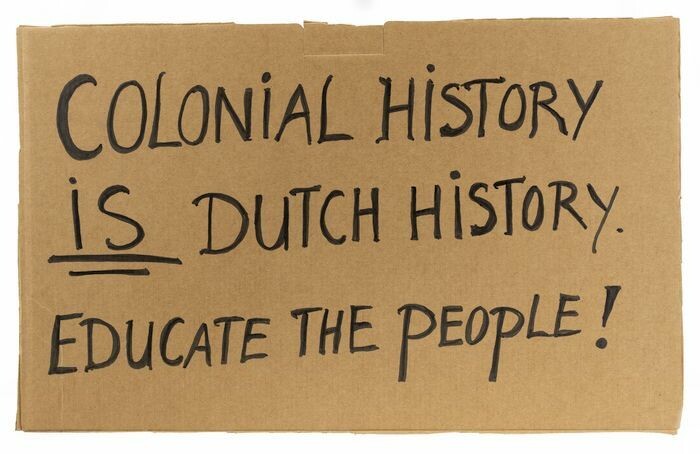 COLONiAL HiSTORY
iS DUTCH HiSTORY.
EDUCATE THE PEOPLE!